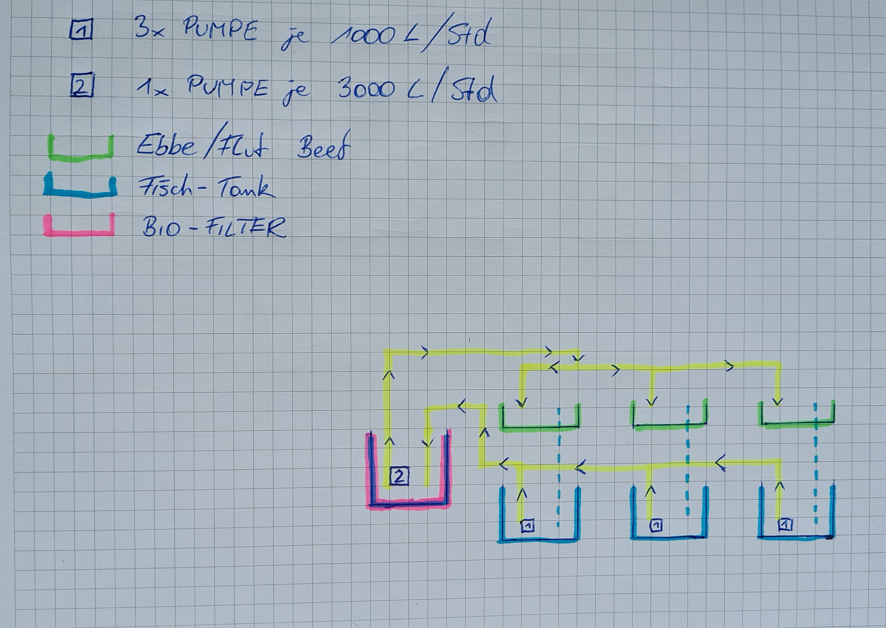 1 3x PUMPE je 1000 L/Std
2 1x PUMPE je 3000 L/Std
Ebbe/Flut Beet
Fisch-Tank
BIO-FILTER
2
1 1 1